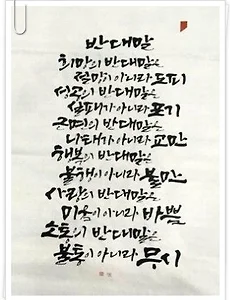 반대말
희망의 반대말은
절망이 아니라 도피
성공의 반대말은
실패가 아니라 포기
근면의 반대말은
나태가 아니라 교만
행복의 반대말은
불행이 아니라 불만
사랑의 반대말은
미움이 아니라 바쁨
소통의 반대말은
불통이 아니라 무시